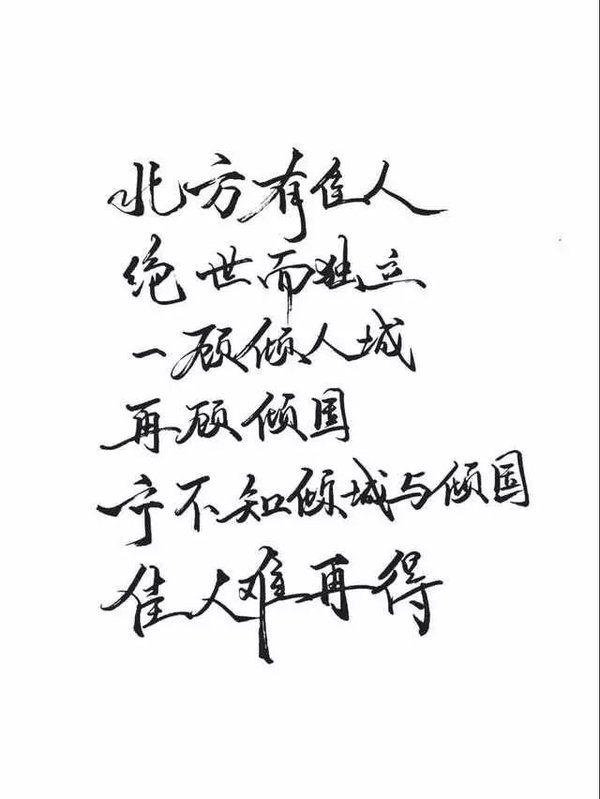 北方有佳人
绝世而独立
一顾倾人城
再顾倾国
宁不知倾城与倾国
佳人难再得